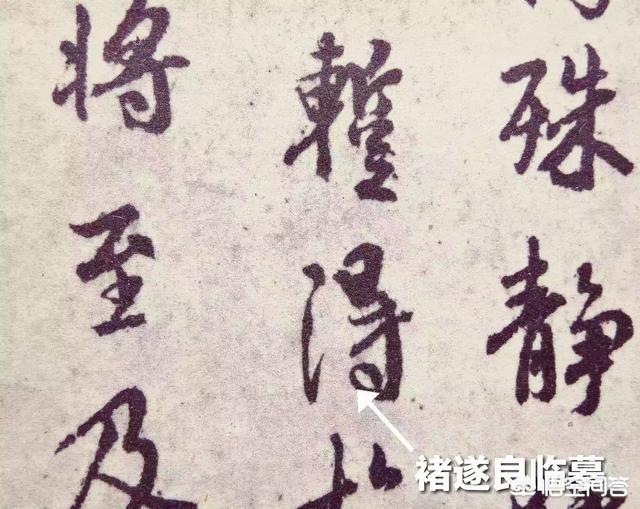 殊静
暫得
将至及
褚遂良临墓
悟空问答